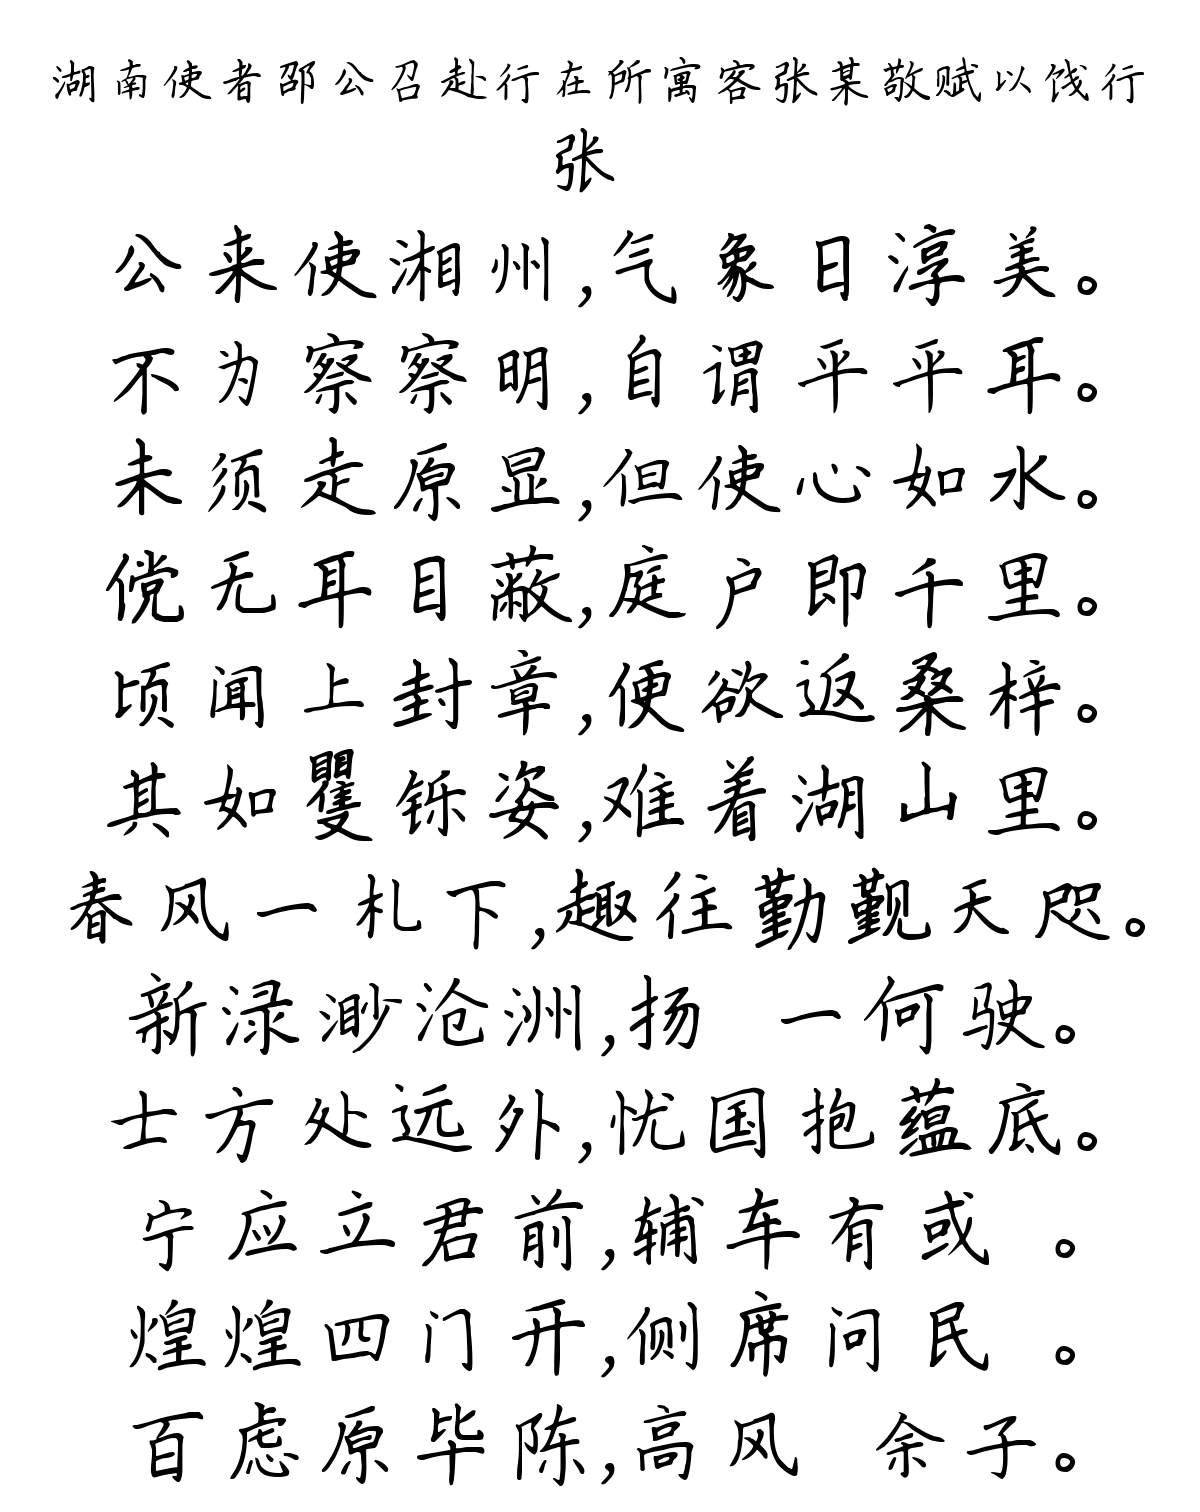 湖南使者邵公召赴行在所寓客张某敬赋以饯行
张
公来使湘州,气象日淳美。
不为察察明,自谓平平耳。
未须走原显,但使心如水。
傥无耳目蔽,庭户即千里。
顷闻上封章,便欲返桑梓。
其如矍铄姿,难着湖山里。
春风一札下,趣往勤觐天咫。
新渌渺沧洲,扬 一何驶。
士方处远外,忧国抱蕴底。
宁应立君前,辅车有或 。
煌煌四门开,侧席问民 。
百虑原毕陈,高风 余子。